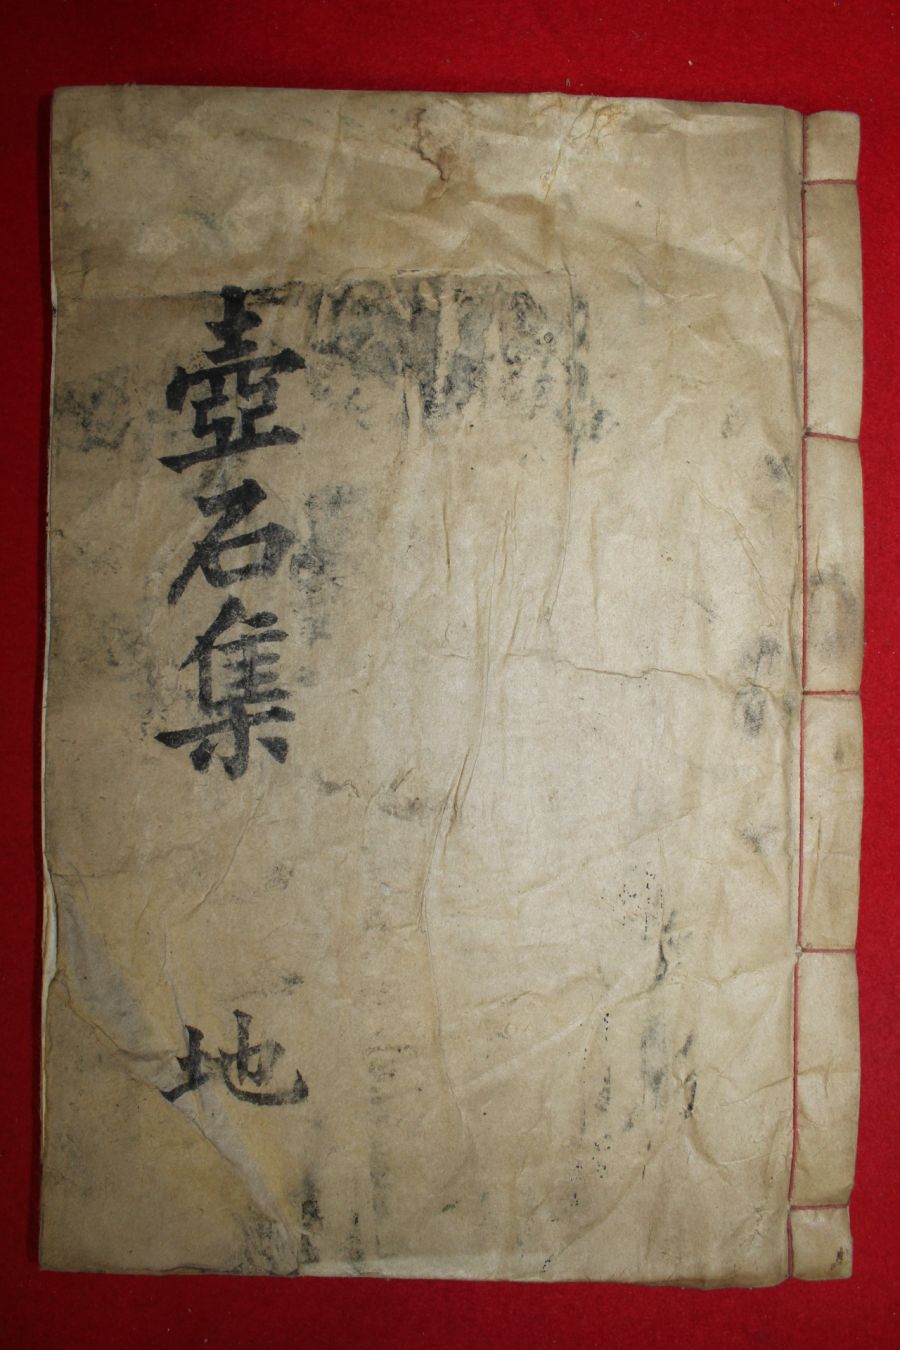 壺石集
地